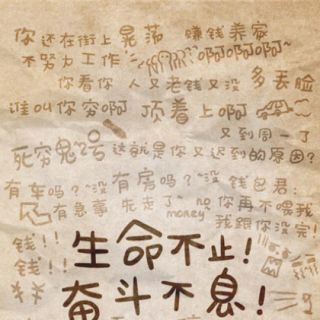 你还在街上晃荡 赚钱养家
不努力工作 啊啊啊啊~
你看你 人又老钱又没 多丢脸
谁叫你穷啊 顶着上啊
又到周一了
死穷鬼2号 这就是你又迟到的原因?
有车吗?~没有房吗?~没 钱包君:
有急事 先走了~ no money 你再不喂我
我跟你没完!
钱!!
钱!!
生命不止!
奋斗不息!